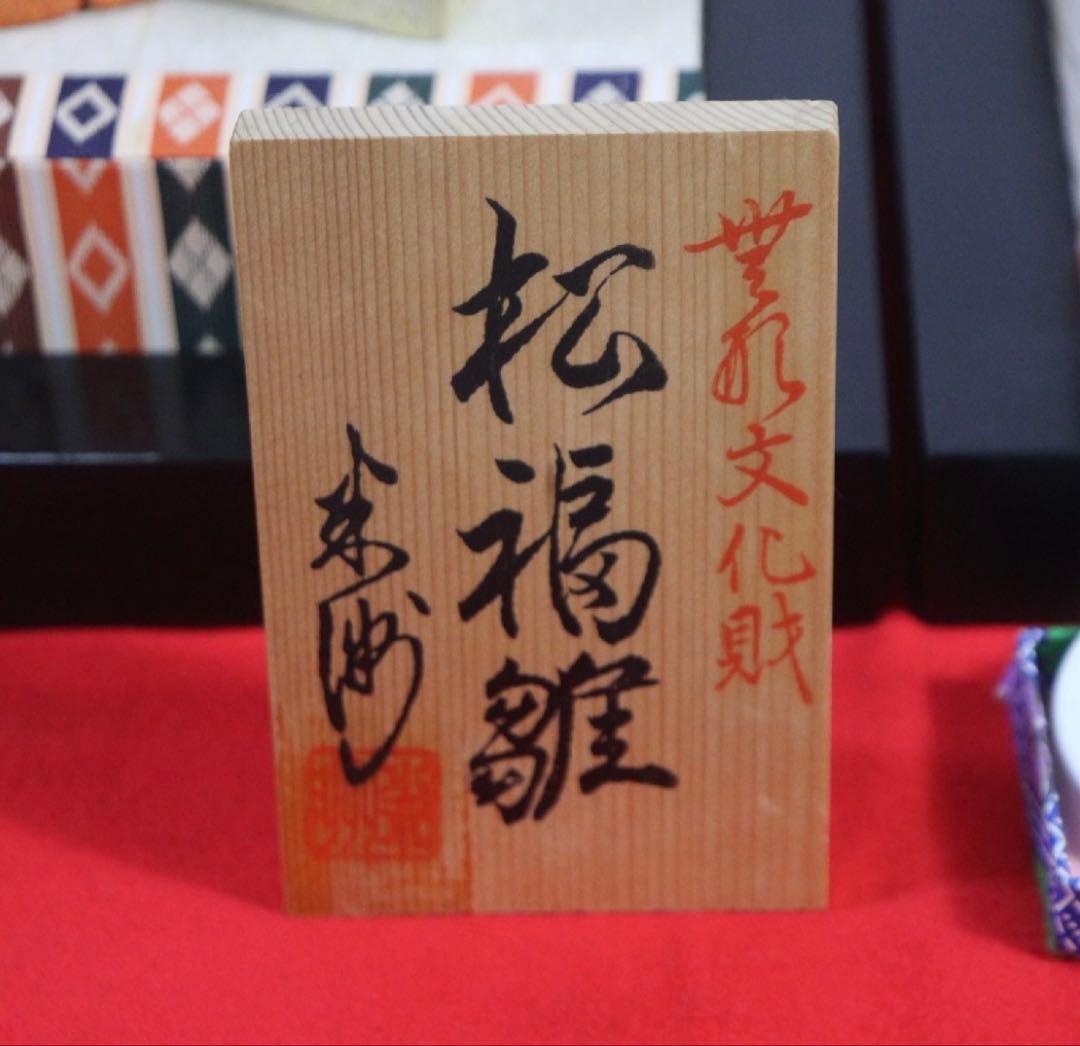 無形文化財
松福雛
米洲